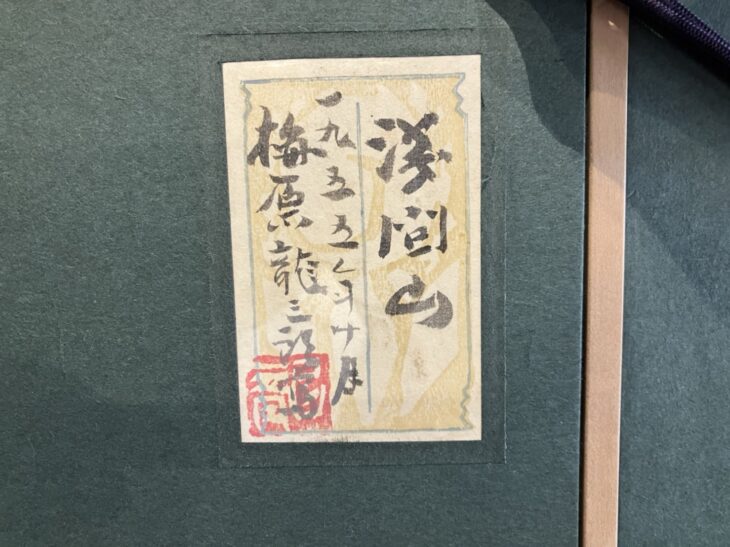 浅間山
一九五五年十月
梅原龍三郎写